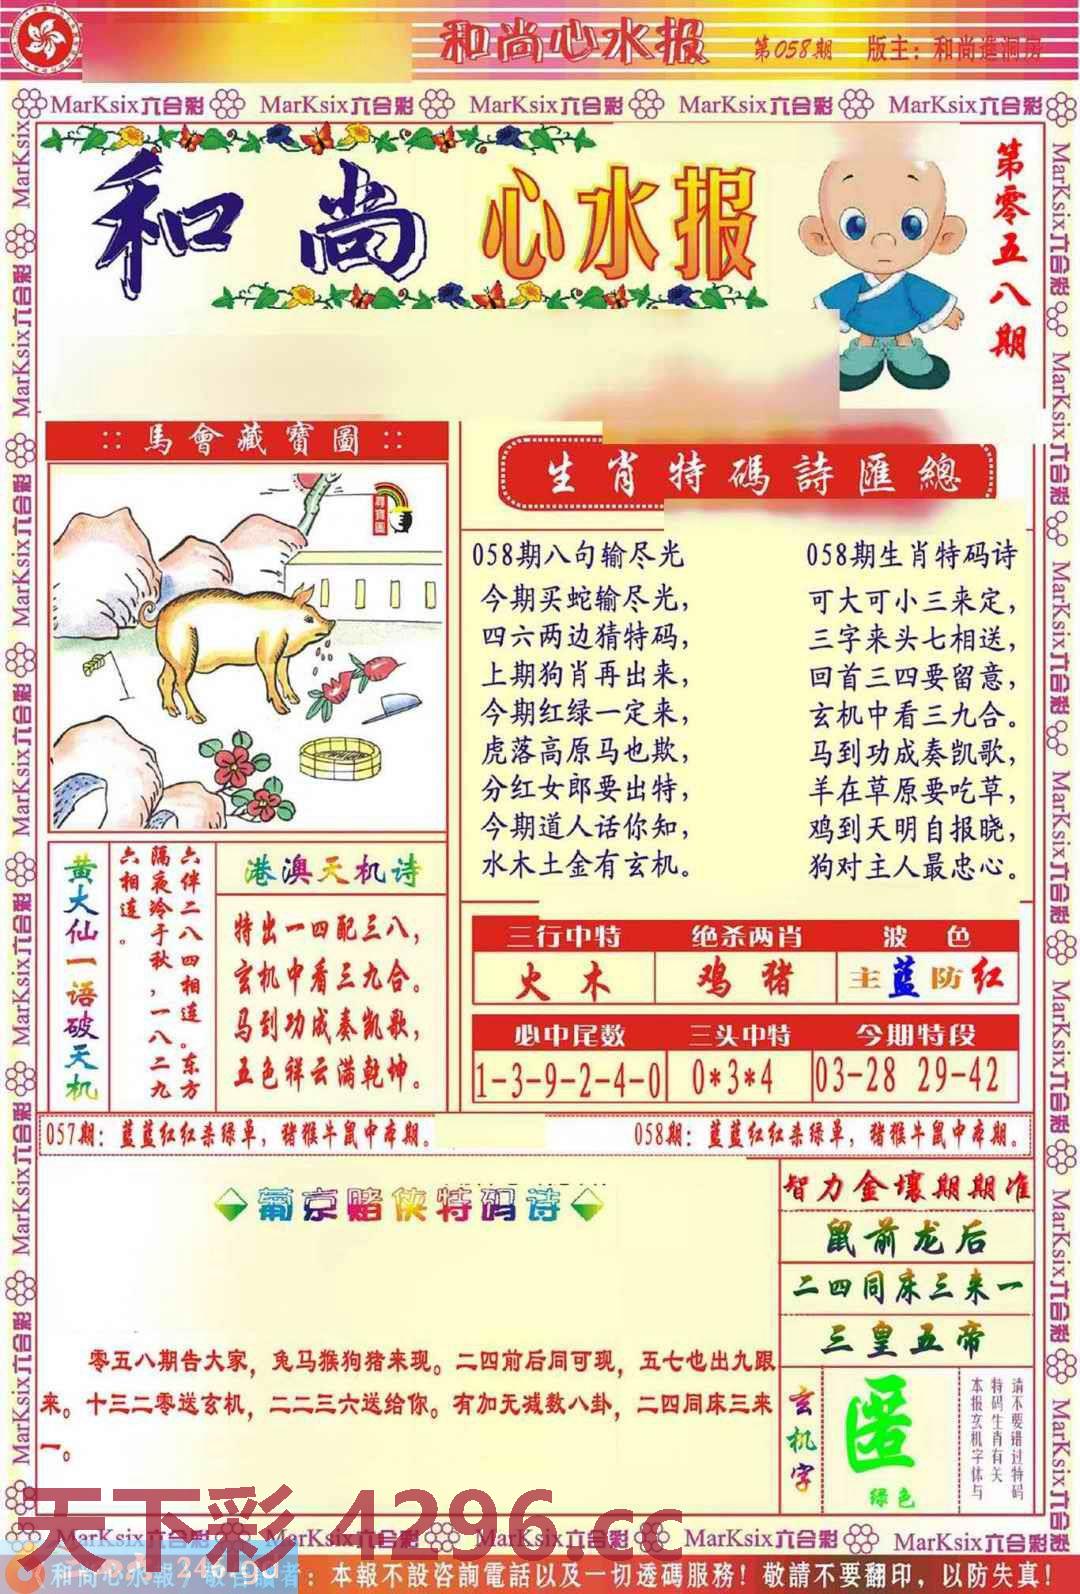 和尚心水报
第058期
版主：和尚進洞房
MarKsix六合彩 MarKsix六合彩 MarKsix六合彩 MarKsix六合彩 MarKsix六合彩
和尚心水报
第零五八期
馬會藏寶圖
尋寶圖
生肖特碼詩匯總
058期八句输尽光
今期买蛇输尽光，
四六两边猜特码，
上期狗肖再出来，
今期红绿一定来，
虎落高原马也欺，
分红女郎要出特，
今期道人话你知，
水木土金有玄机。
058期生肖特码诗
可大可小三来定，
三字来头七相送，
回首三四要留意，
玄机中看三九合。
马到功成奏凯歌，
羊在草原要吃草，
鸡到天明自报晓，
狗对主人最忠心。
黄大仙一语破天机
六伴二八四相连。东方
隔夜冷于秋，一八二九
六相连。
港澳天机诗
特出一四配三八，
玄机中看三九合。
马到功成奏凯歌，
五色祥云满乾坤。
三行中特 绝杀两肖 波色
火木 鸡猪 主蓝防红
必中尾数 三头中特 今期特段
1-3-9-2-4-0 0*3*4 03-28 29-42
057期：蓝蓝红红杀绿单，猪猴牛鼠中本期。
058期：蓝蓝红红杀绿单，猪猴牛鼠中本期。
葡京赌侠特码诗
零五八期告大家，兔马猴狗猪来现。二四前后同可现，五七也出九跟
来。十三二零送玄机，二二三六送给你。有加无减数八卦，二四同床三来
一。
智力金壤期期准
鼠前龙后
二四同床三来一
三皇五帝
玄机字
匿
绿色
请不要错过特码
特码生肖有关
本报玄机字体与
天下彩 4296.cc
MarKsix六合彩 MarKsix六合彩 MarKsix六合彩 MarKsix六合彩 MarKsix六合彩
和尚心水報，敬告讀者：本報不設咨詢電話以及一切透碼服務！敬請不要翻印，以防失真！